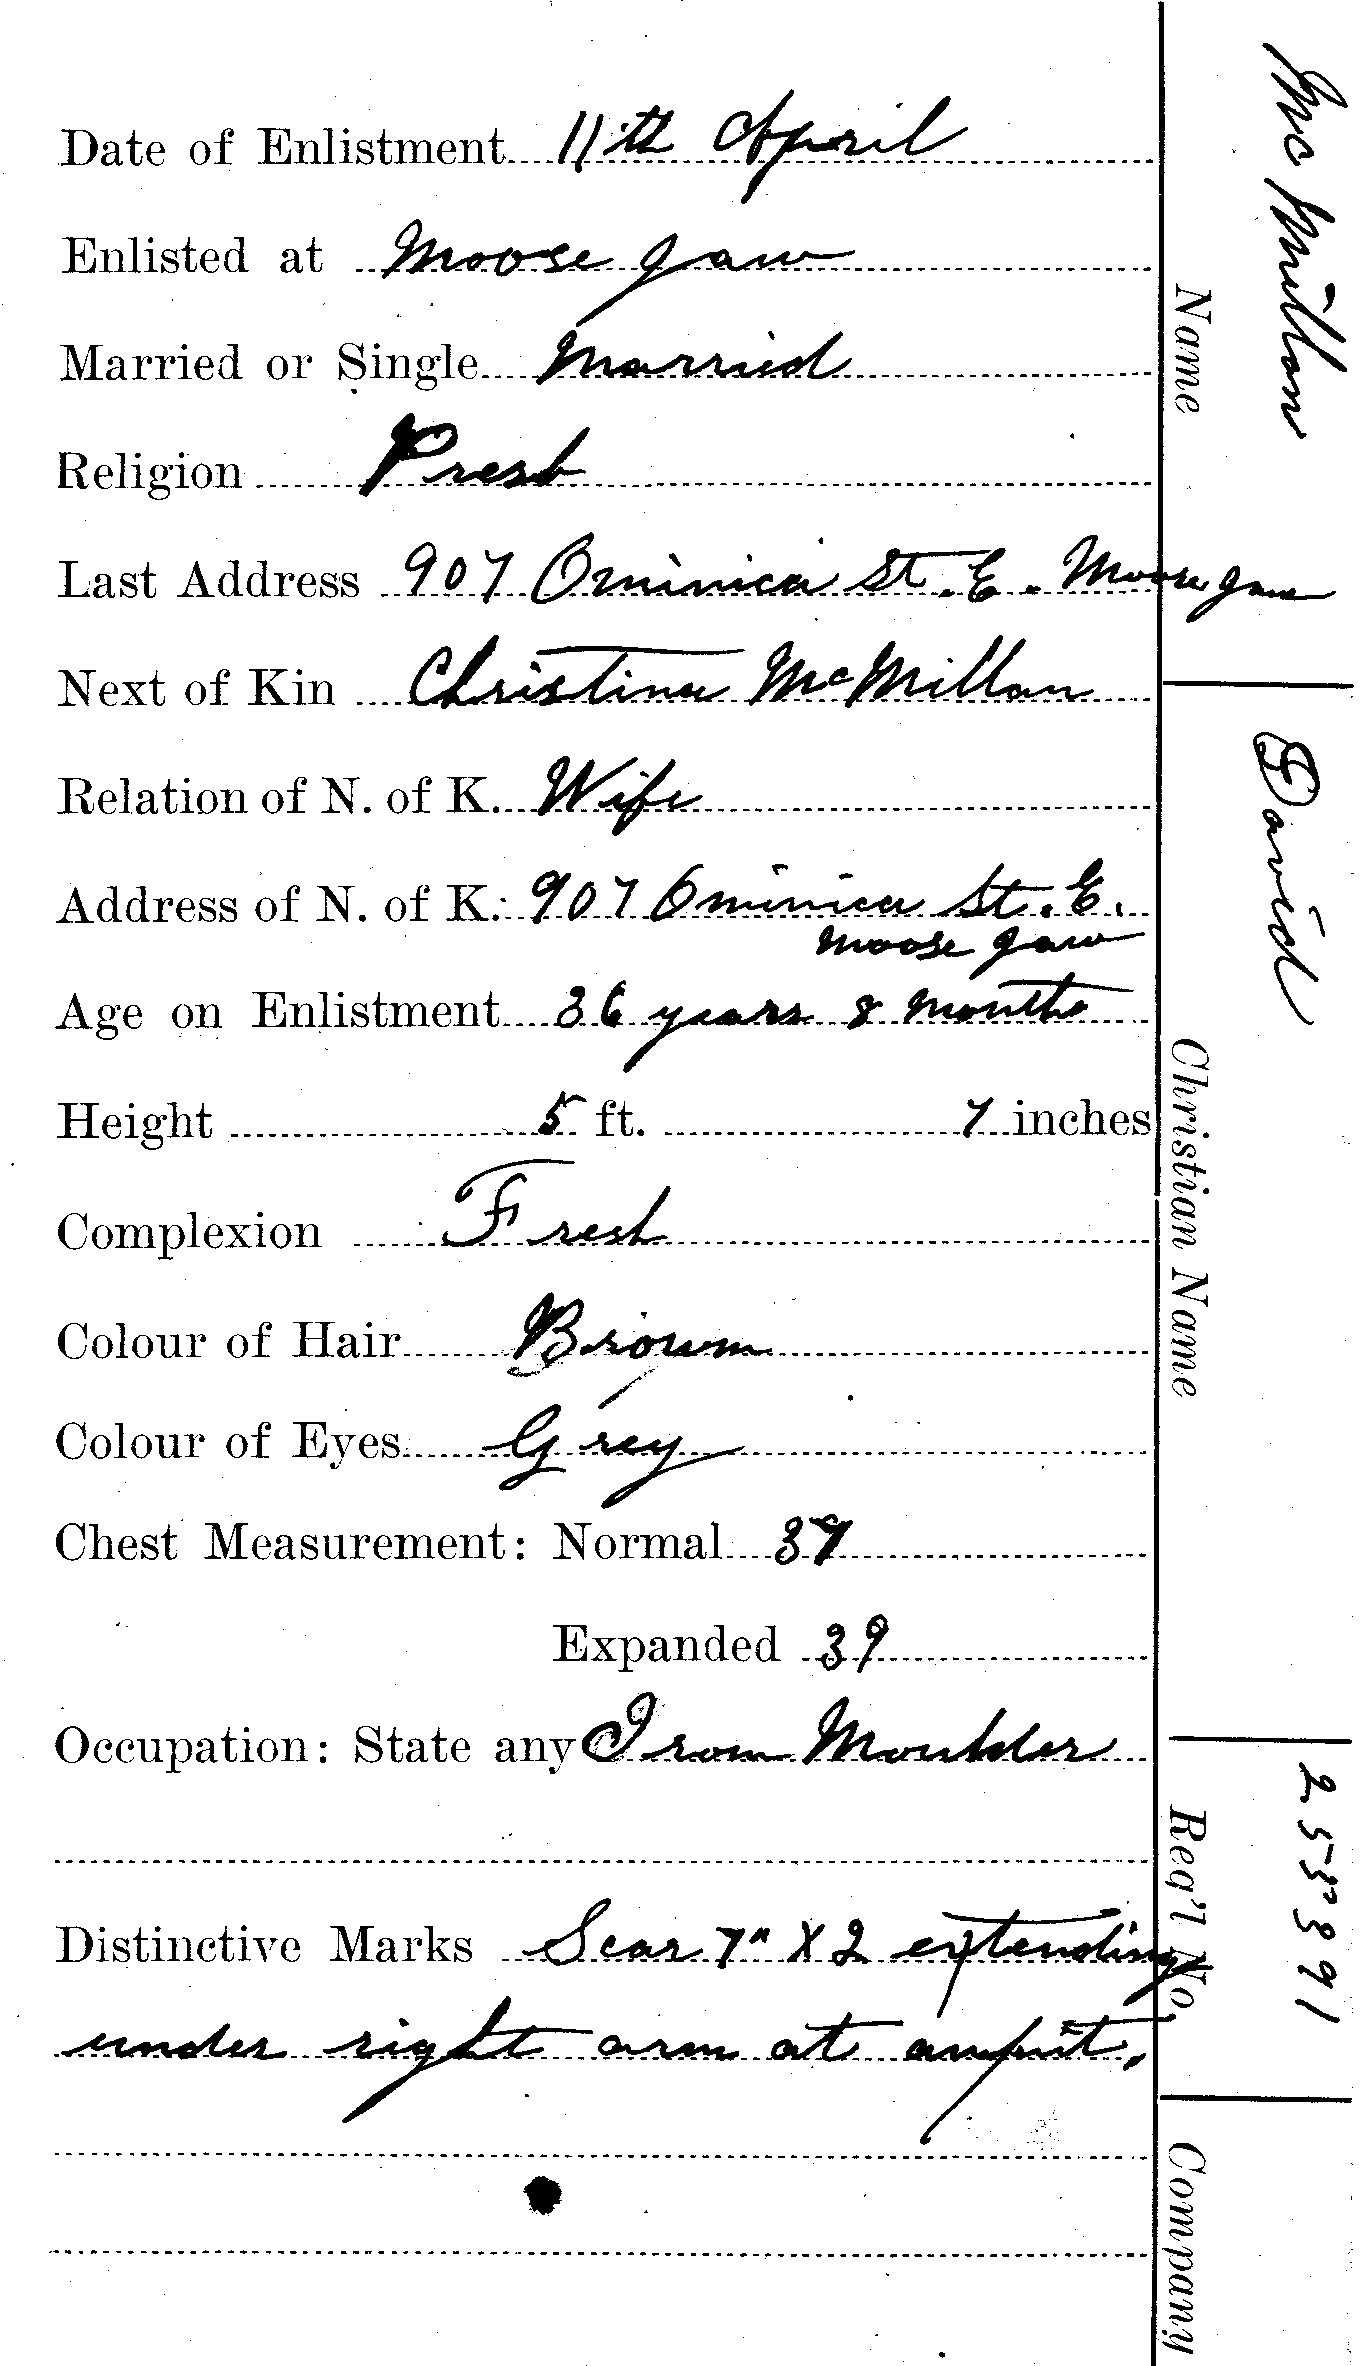 Date of Enlistment 11th April
Enlisted at Moose Jaw
Married or Single Married
Religion Presb
Last Address 907 Ominica St. E. Moose Jaw
Next of Kin Christina McMillan
Relation of N. of K. Wife
Address of N. of K. 907 Ominica St. E.
Moose Jaw
Age on Enlistment 36 years 8 months
Height 5 ft. 7 inches
Complexion Fresh
Colour of Hair Brown
Colour of Eyes Grey
Chest Measurement: Normal 37
Expanded 39
Occupation: State any Iron Moulder
Distinctive Marks Scar 7" X 2 extending
under right arm at ampit.
McMillan
Name
David
Christian Name
Reg'l No.
Company